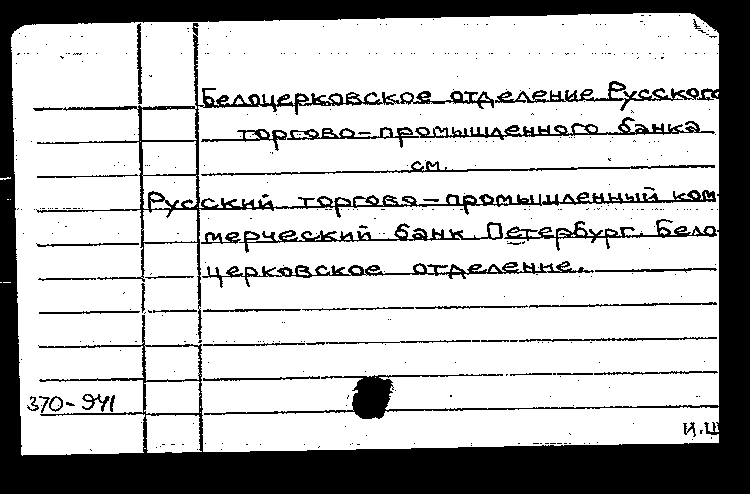 Белоцерковское отделение Русского
торгово-промышленного банка
см.
Русский торгово-промышленный ком-
мерческий банк. Петербург. Бело-
церковское отделение.
370-941
И.Ш